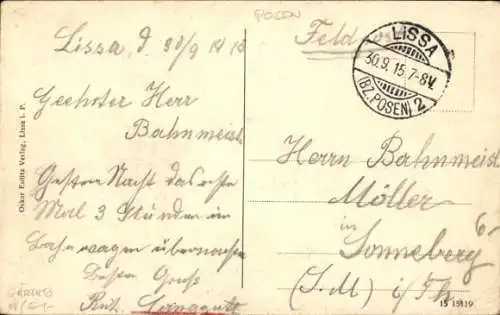 POSEN
Lissa, d. 30/9 1915
Feldpost
LISSA
30.9.15.7-8V.
(BZ. POSEN) 2
Geehrter Herr
Bahnmeister
Gestern Nacht das erste
Mal 3 Stunden im
übernachtet
Besten Gruss
Herrn Bahnmeister
Möller
in
Sonneberg
(S. M.) i/Th.
6-
Oskar Eulitz Verlag, Lissa i. P.
15 15119